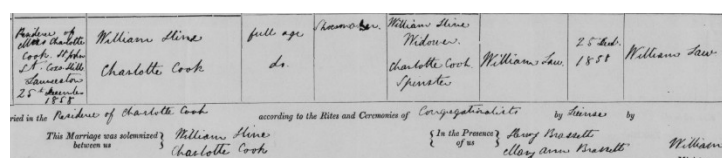 Residence of
Miss Charlotte
Cook St John
St.
Launceston
25th December
1858
William Stine
Charlotte Cook
full age
do.
Shoemaker.
William Stine
Widower.
Charlotte Cook
Spinster
William Law.
25 Decb.
1858
William Law.
ried in the Residence of Charlotte Cook according to the Rites and Ceremonies of Congregationalists by License by
This Marriage was solemnized between us } William Stine
Charlotte Cook
{ In the Presence of us } Henry Brassett
Mary Ann Brassett
William